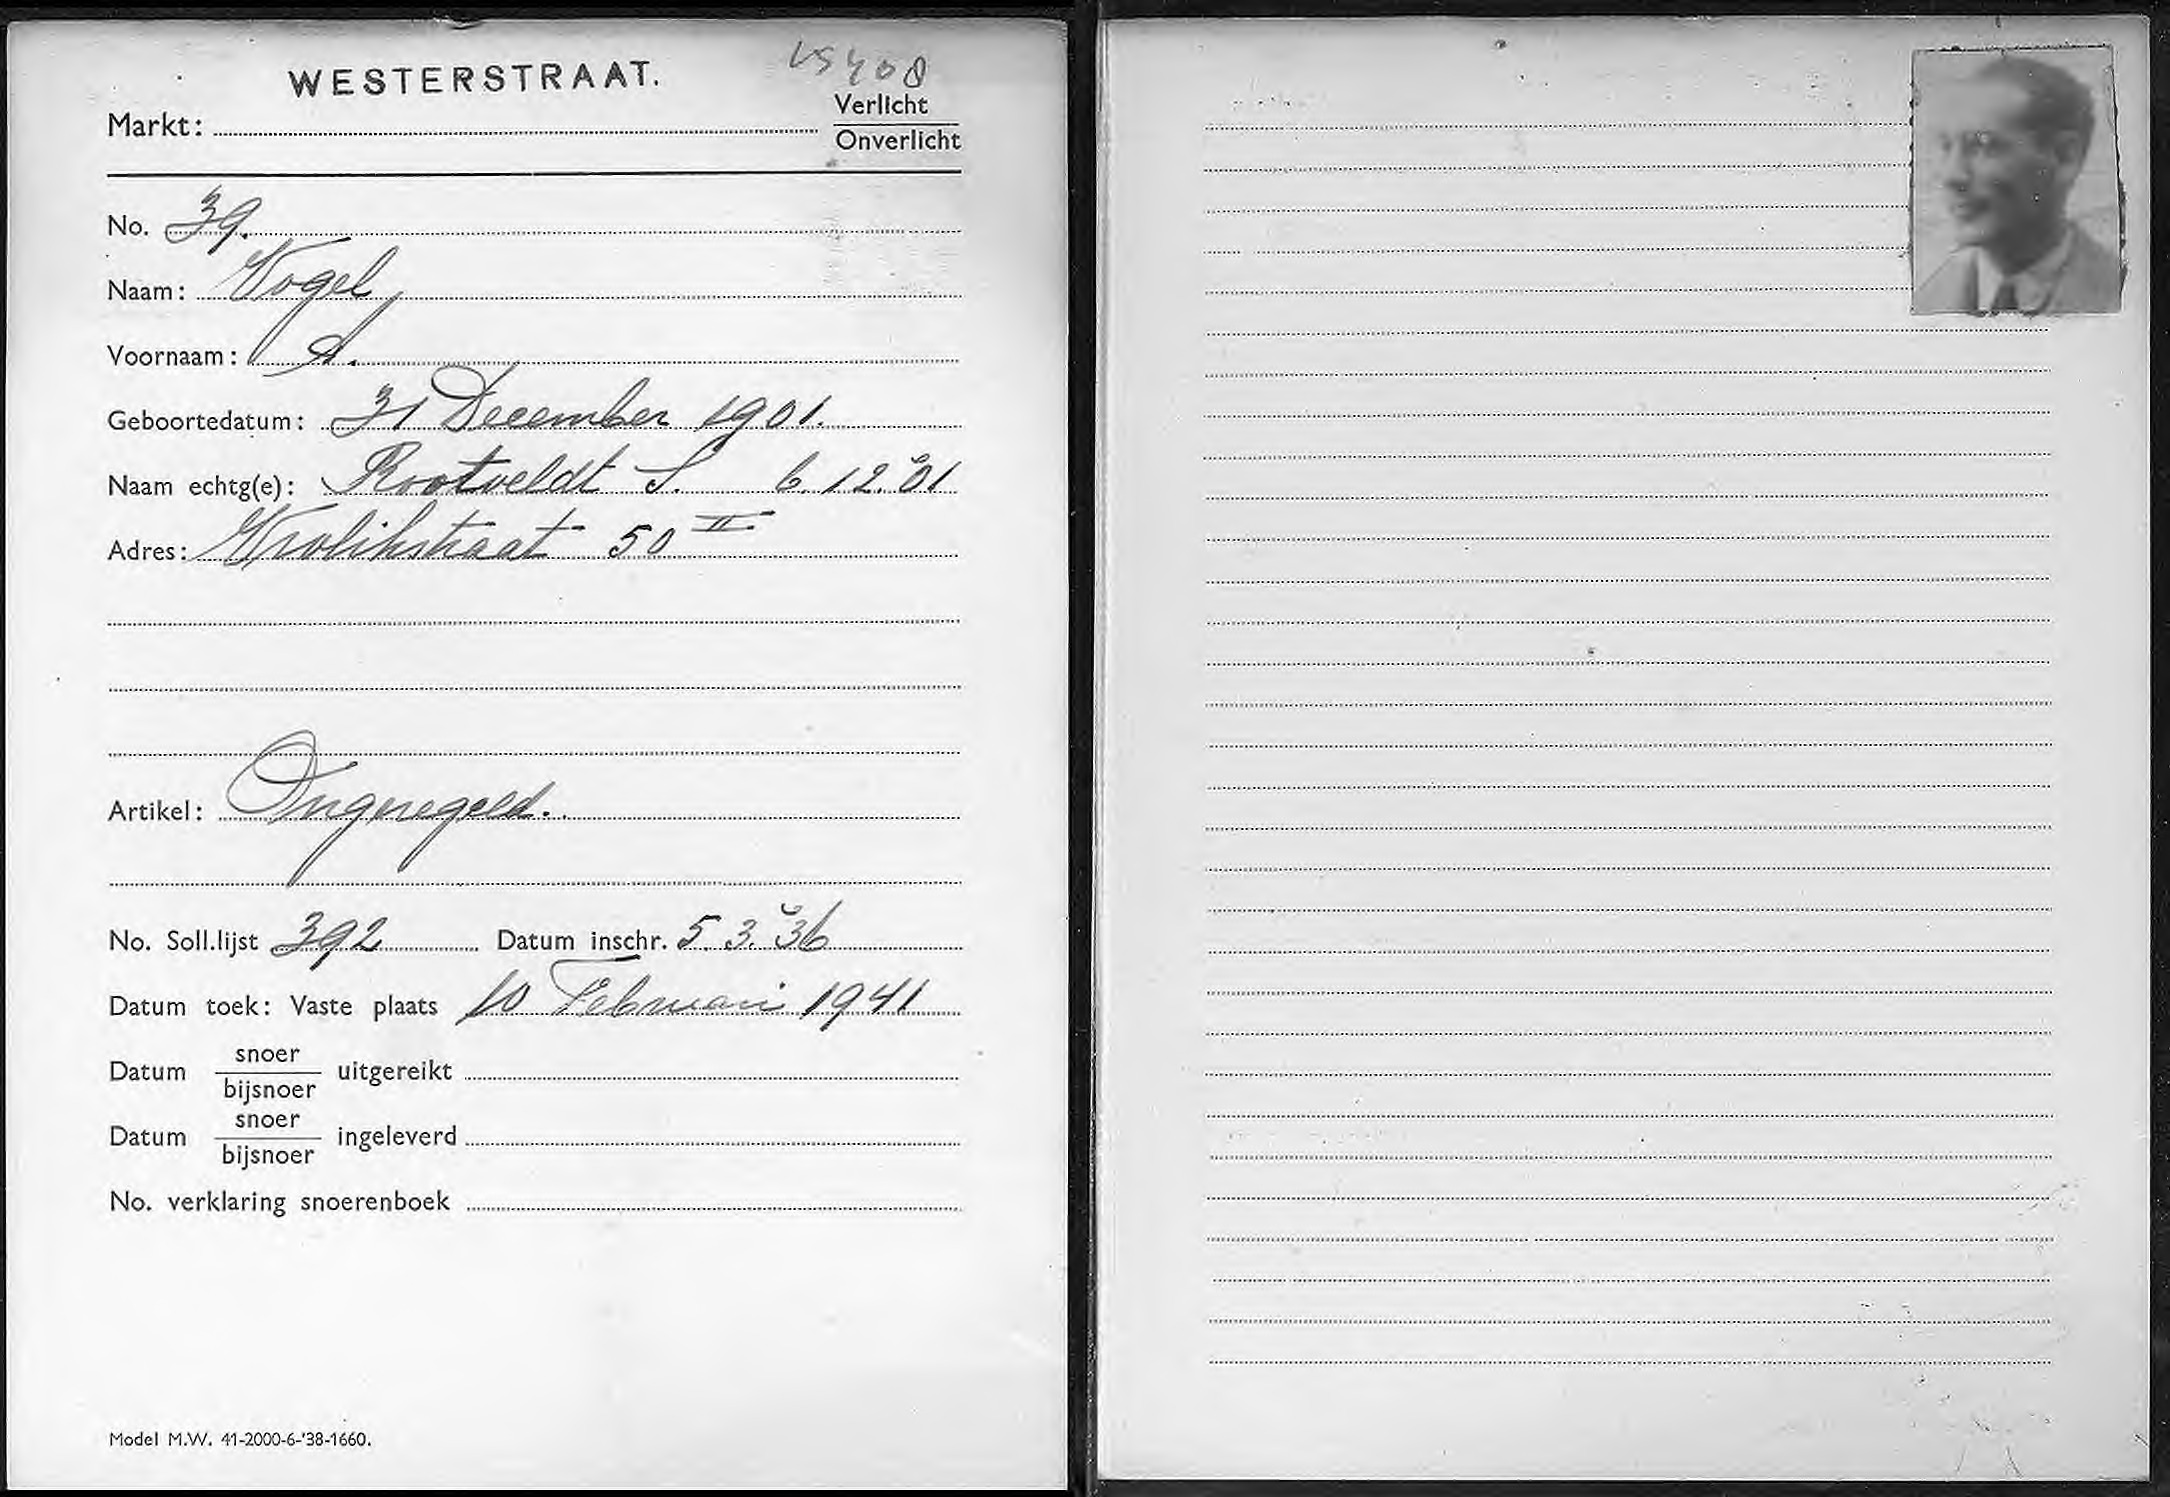 WESTERSTRAAT.
Markt: Verlicht
Onverlicht
No. 39.
Naam: Vogel
Voornaam: A.
Geboortedatum: 31 December 1901.
Naam echtg(e): Rootveldt S. 6.12.'01
Adres: Vrolikstraat 50 II
Artikel: Ongeregeld.
No. Soll.lijst 392 Datum inschr. 5.3.'36
Datum toek: Vaste plaats 10 Februari 1941
Datum snoer/bijsnoer uitgereikt
Datum snoer/bijsnoer ingeleverd
No. verklaring snoerenboek
Model M.W. 41-2000-6-'38-1660.